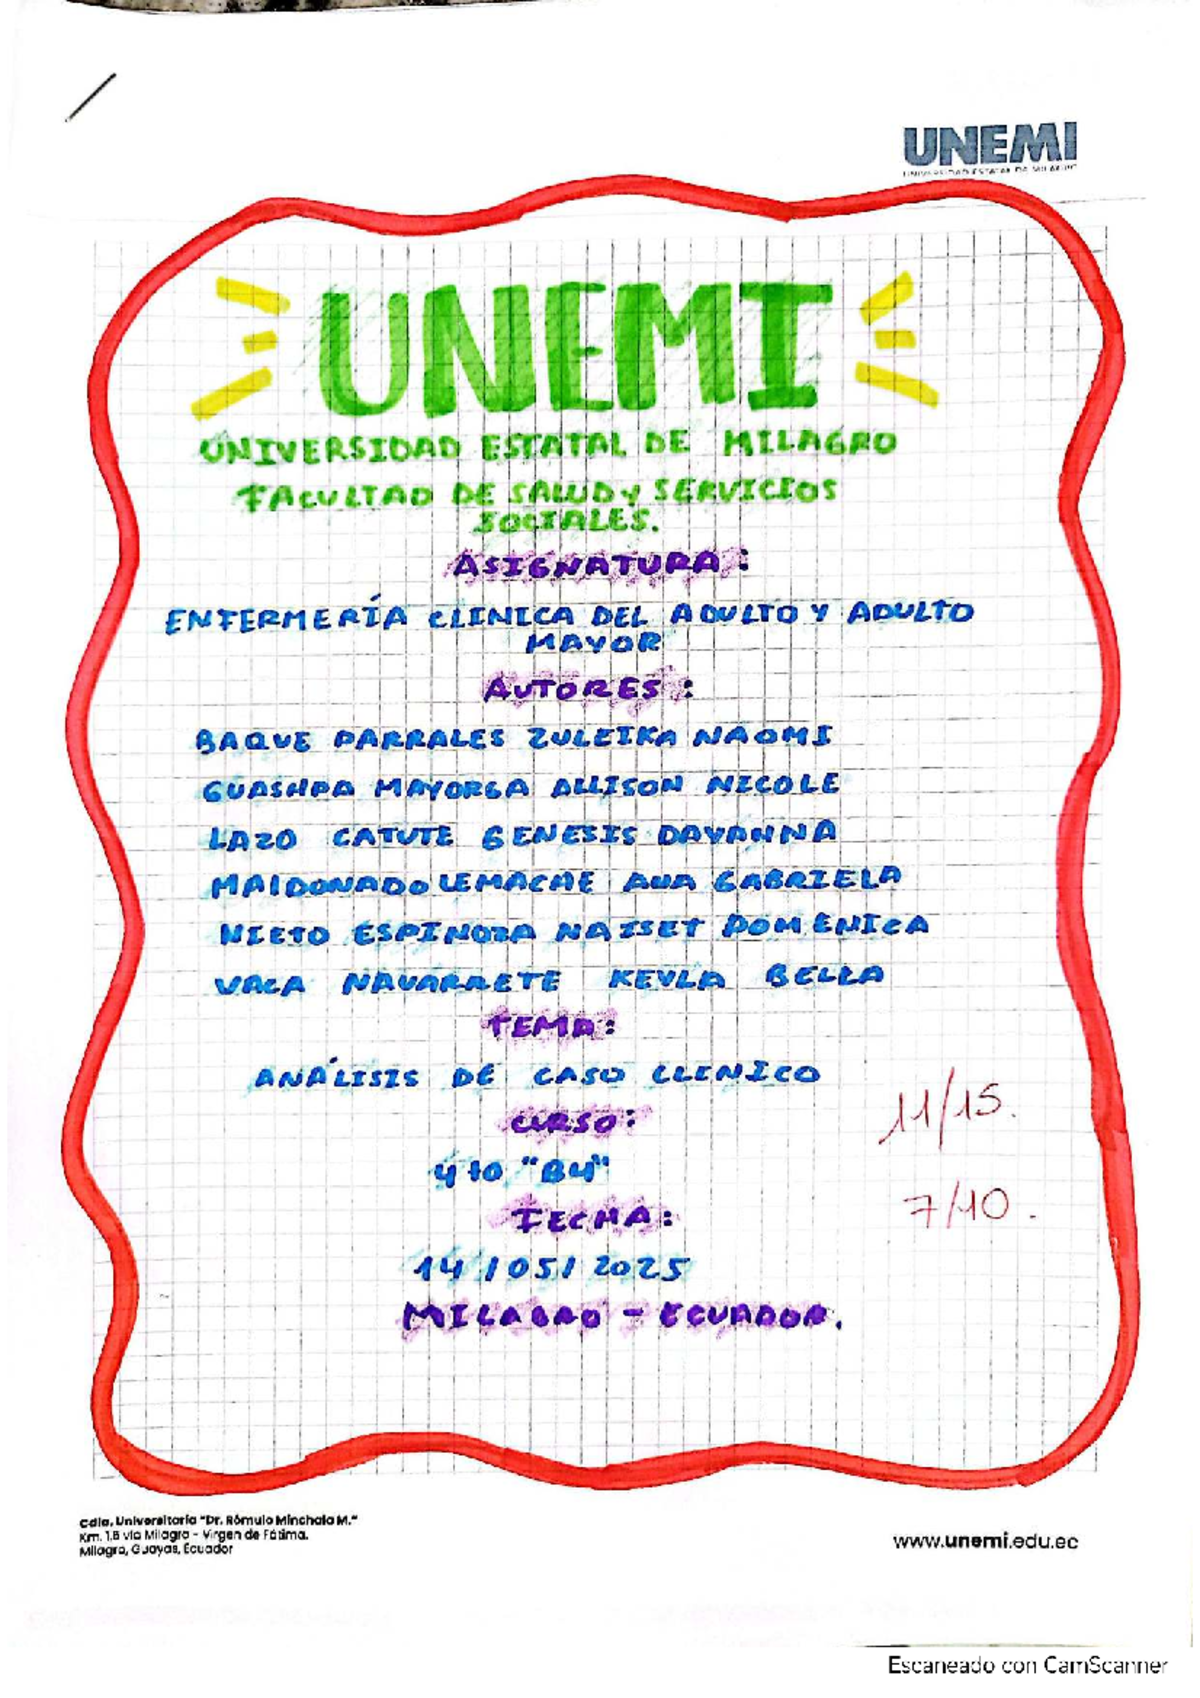 UNEMI
UNIVERSIDAD ESTATAL DE MILAGRO
UNEMI
UNIVERSIDAD ESTATAL DE MILAGRO
FACULTAD DE SALUD Y SERVICIOS
SOCIALES.
ASIGNATURA:
ENFERMERÍA CLINICA DEL ADULTO Y ADULTO
MAYOR
AUTORES:
BAQUE PARRALES ZULEIKA NAOMI
GUASHPA MAYORGA ALLISON NICOLE
LAZO CATUTE GENESIS DAYANNA
MALDONADO LEMACHE ANA GABRIELA
NIETO ESPINOZA NAISET DOMENICA
VACA NAVARRETE KEYLA BELLA
TEMA:
ANÁLISIS DE CASO CLINICO
11/15.
CURSO:
4to "B4"
7/10.
FECHA:
14/05/2025
MILAGRO - ECUADOR.
Cdla. Universitaria "Dr. Rómulo Minchala M."
Km. 1.5 vía Milagro - Virgen de Fátima.
Milagro, Guayas, Ecuador
www.unemi.edu.ec
Escaneado con CamScanner